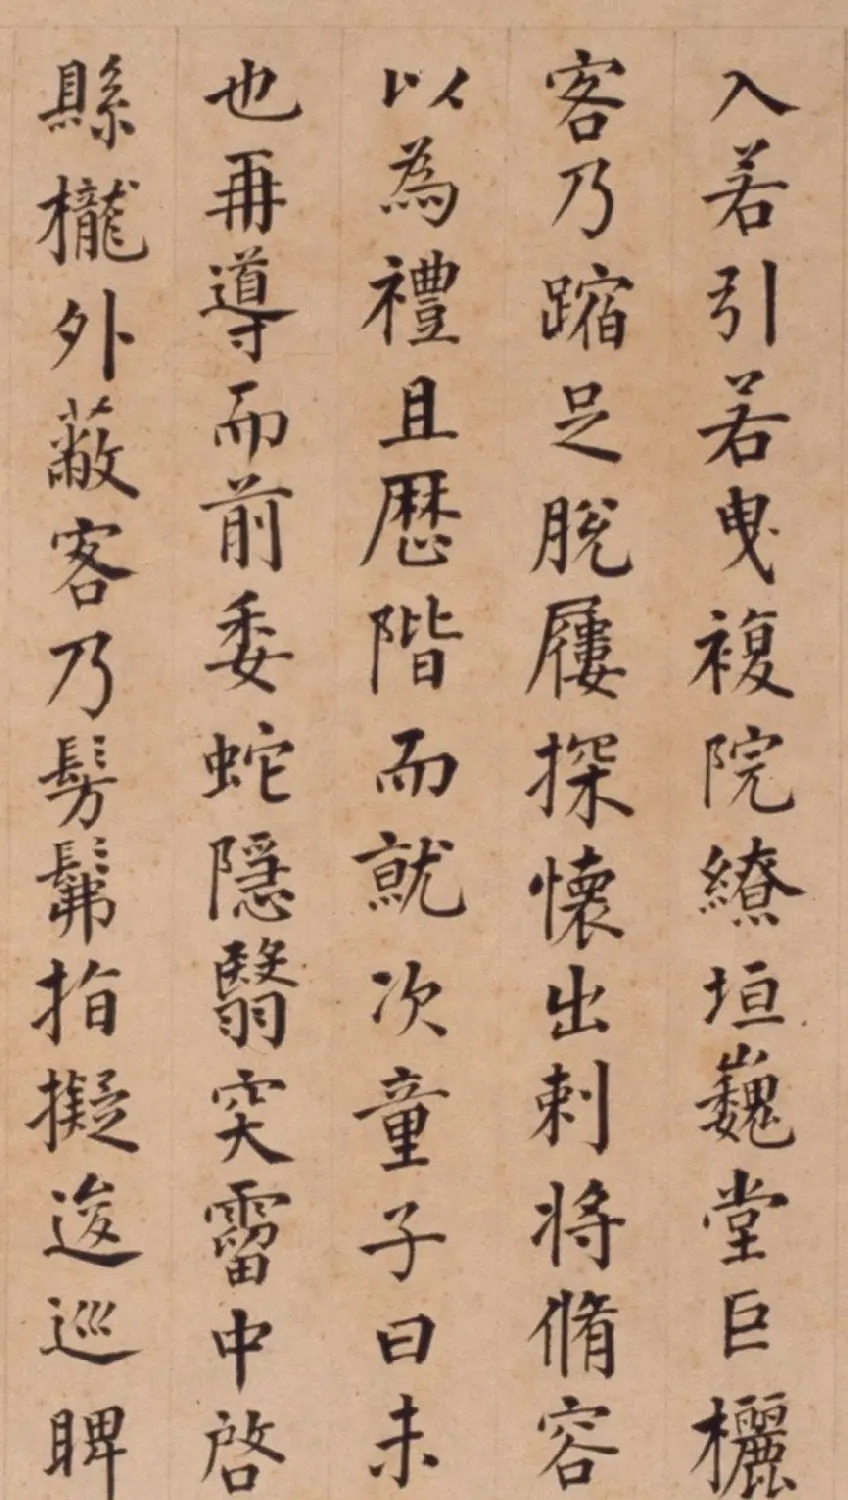 入若引若曳複院繚垣巍堂巨欐
客乃蹜足脫屨探懷出刺将脩容
以為禮且歴階而就次童子曰未
也再導而前委蛇隱翳突霤中啓
縣櫳外蔽客乃髣髴指擬逡巡睥